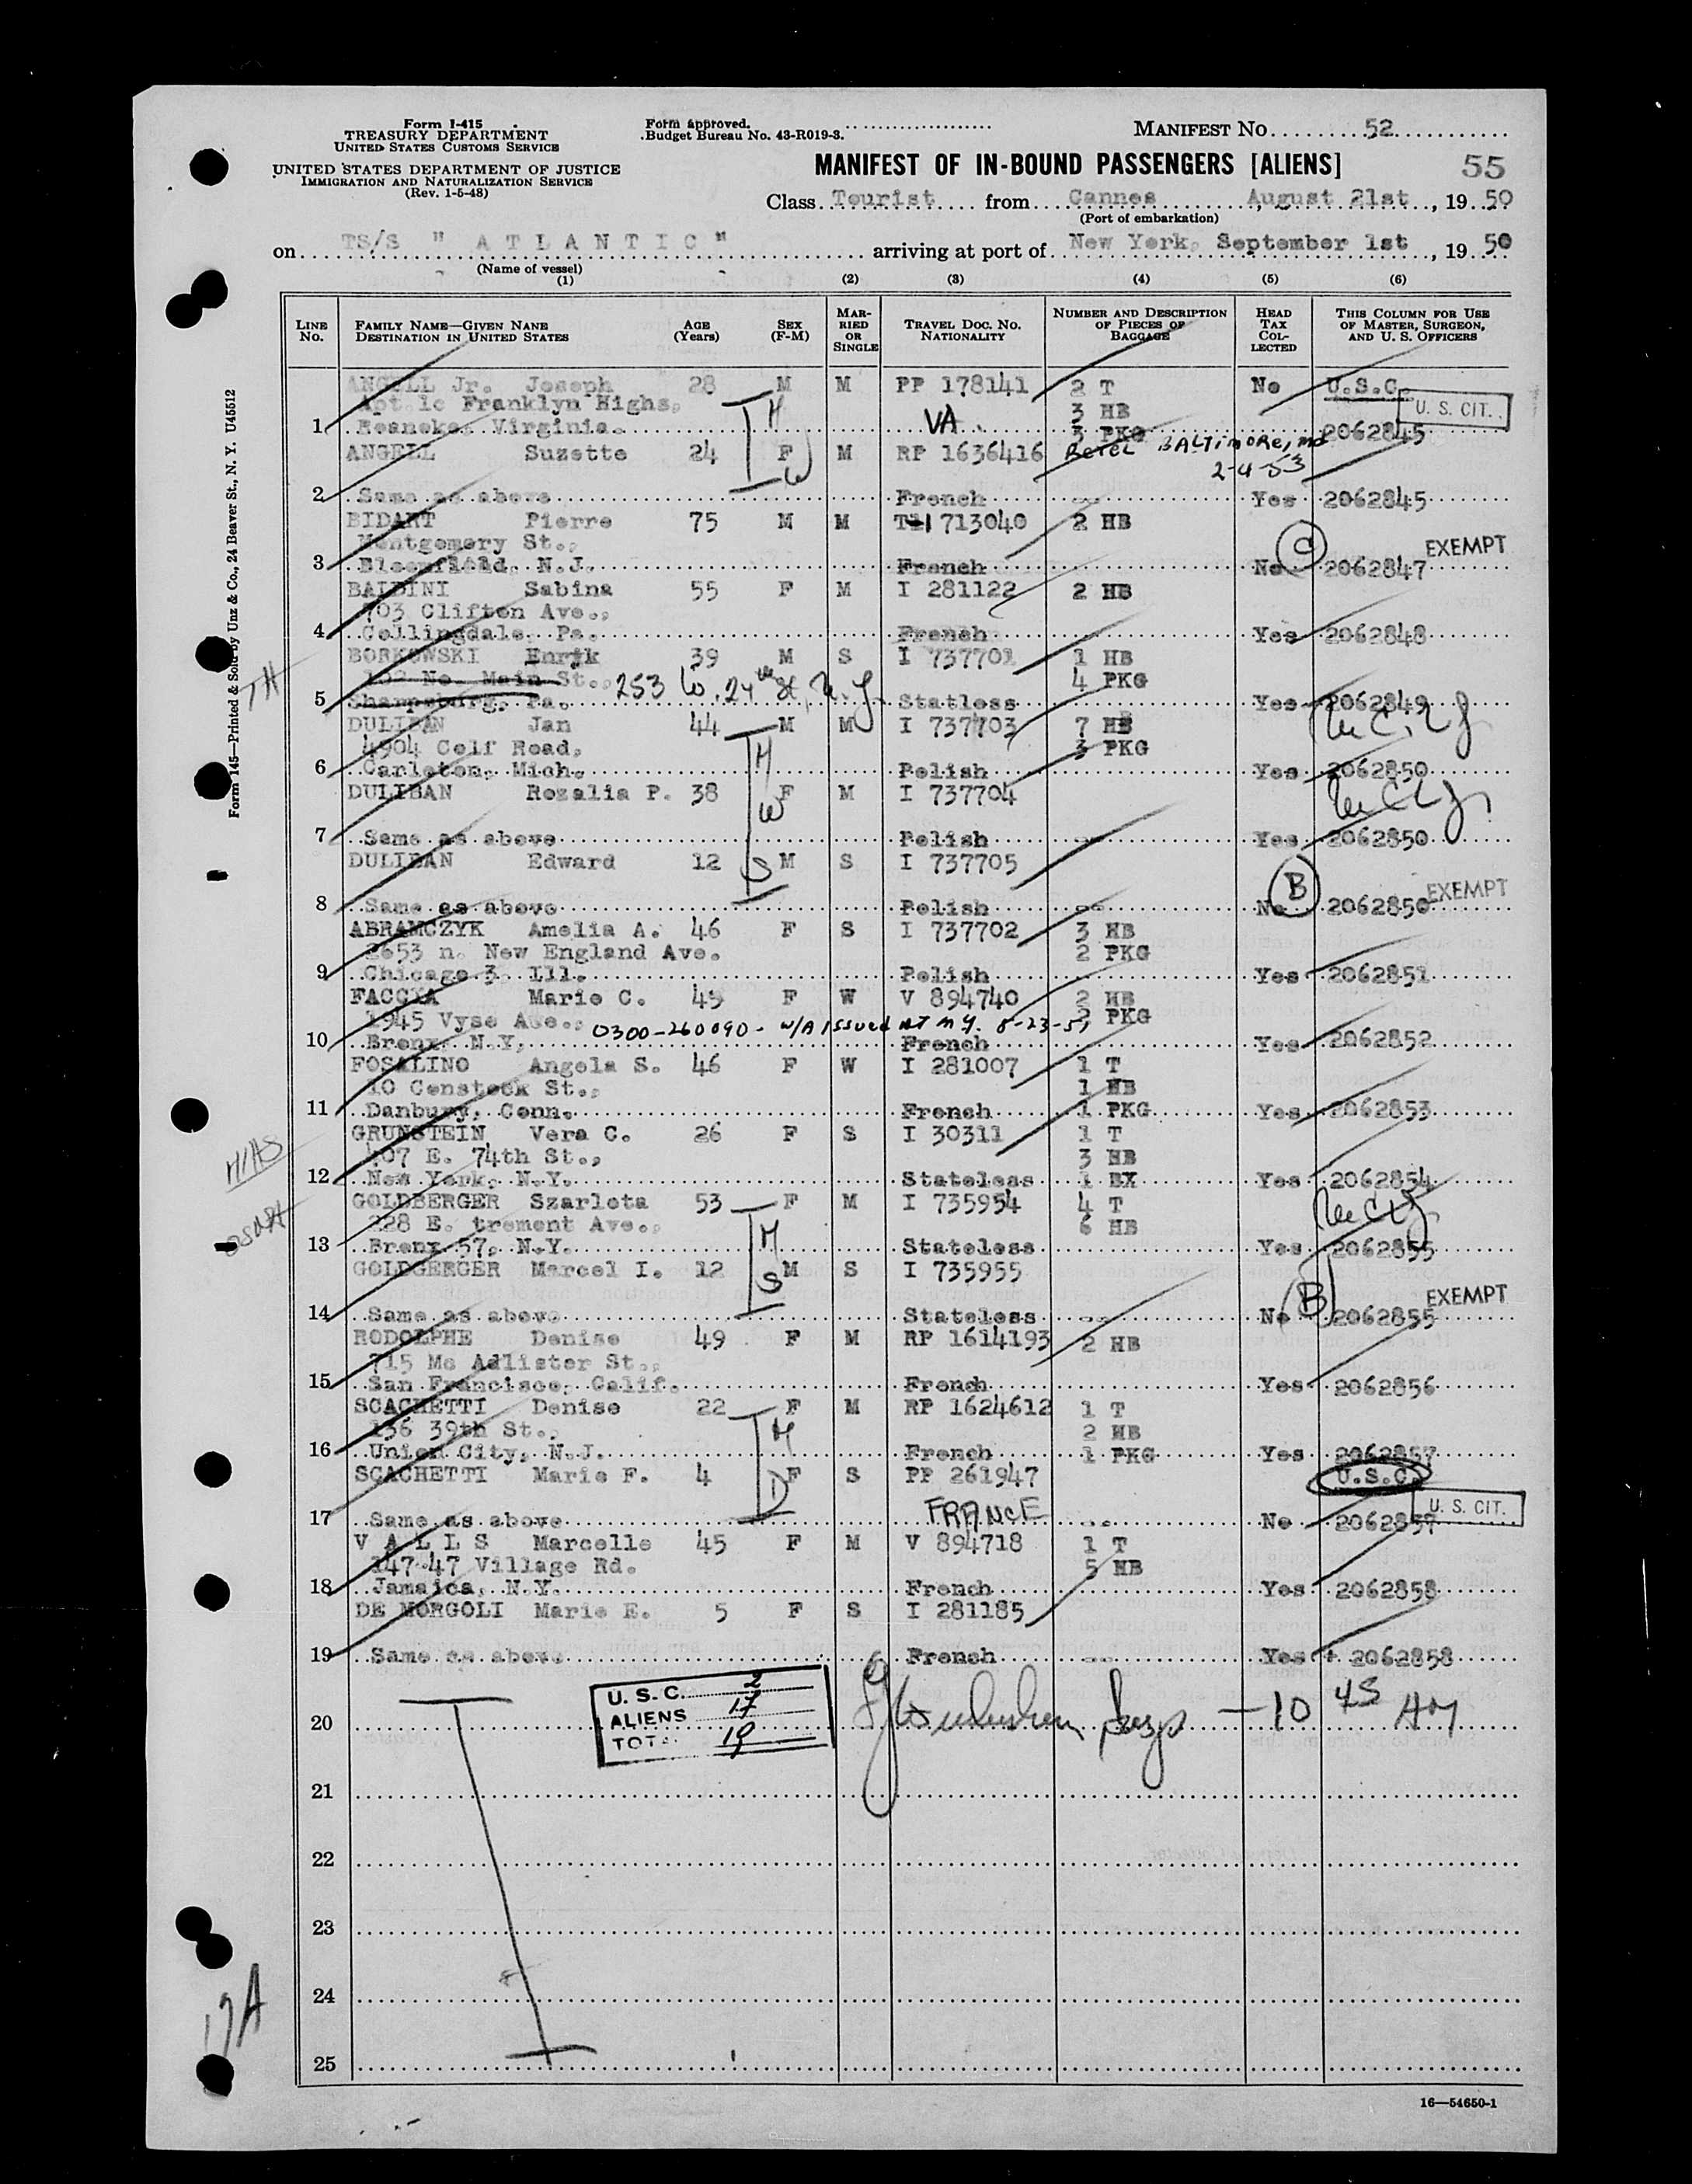 Form I-415
TREASURY DEPARTMENT
UNITED STATES CUSTOMS SERVICE
UNITED STATES DEPARTMENT OF JUSTICE
IMMIGRATION AND NATURALIZATION SERVICE
(Rev. 1-5-48)
Form approved.
Budget Bureau No. 43-R019-3.
MANIFEST NO. 52
MANIFEST OF IN-BOUND PASSENGERS [ALIENS] 55
Class Tourist from Cannes August 21st, 19 50
(Port of embarkation)
on TS/S " A T L A N T I C " arriving at port of New York, September 1st, 19 50
(Name of vessel)
(1) (2) (3) (4) (5) (6)
LINE NO. FAMILY NAME—GIVEN NANE DESTINATION IN UNITED STATES AGE (Years) SEX (F-M) MARRIED OR SINGLE TRAVEL DOC. NO. NATIONALITY NUMBER AND DESCRIPTION OF PIECES OF BAGGAGE HEAD TAX COLLECTED THIS COLUMN FOR USE OF MASTER, SURGEON, AND U. S. OFFICERS
ANGELL Jr. Joseph 28 M M PP 178141 2 T No U.S.C.
Apt 1c Franklyn Highs, 3 HB U. S. CIT.
1 Roaneke, Virginia. VA 3 PKG 2062845
ANGELL Suzette 24 F M RP 1636416 BALTIMORE, Md
2-4-53
2 Same as above French -- Yes 2062845
BIDART Pierre 75 M M 713040 2 HB
Montgomery St., C EXEMPT
3 Bloomfield, N.J. French No 2062847
BALDINI Sabina 55 F M I 281122 2 HB
703 Clifton Ave.,
4 Collingdale, Pa. French Yes 2062848
BORKOWSKI Enrik 39 M S I 737701 1 HB
102 No. Main St., 253 W. 24th St, N.Y. 4 PKG
5 Sharpsburg, Pa. Statless Yes 2062849
DULIBAN Jan 44 M M I 737703 7 HB
4904 Colf Road, 3 PKG
6 Carleton, Mich. Polish Yes 2062850
DULIBAN Rozalia P. 38 F M I 737704
7 Same as above Polish -- Yes 2062850
DULIBAN Edward 12 M S I 737705
B EXEMPT
8 Same as above Polish -- No 2062850
ABRAMCZYK Amelia A. 46 F S I 737702 3 HB
2653 n. New England Ave. 2 PKG
9 Chicago 3 Ill. Polish Yes 2062851
FACCIA Marie C. 45 F W V 894740 2 HB
1945 Vyse Ave., 0300-260090- W/A Issued AT N.Y. 2 PKG
10 Bronx, N.Y, French Yes 2062852
FOSALINO Angela S. 46 F W I 281007 1 T
10 Constock St., 1 HB
11 Danbury, Conn. French 1 PKG Yes 2062853
GRUNSTEIN Vera C. 26 F S I 30311 1 T
407 E. 74th St., 3 HB
HIAS
12 New York, N.Y. Stateless 1 BX Yes 2062854
GOLDBERGER Szarlota 53 F M I 735954 4 T
228 E. trement Ave., 6 HB
13 Bronx 57, N.Y. Stateless Yes 2062855
GOLDGERGER Marcel I. 12 M S I 735955
B EXEMPT
14 Same as above Stateless -- No 2062855
RODOLPHE Denise 49 F M RP 1614193 2 HB
715 Mc Adlister St.,
15 San Francisco, Calif. French Yes 2062856
SCACHETTI Denise 22 F M RP 1624612 1 T
136 39th St., 2 HB
16 Union City, N.J. French 1 PKG Yes 2062857
SCACHETTI Marie F. 4 F S PP 261947 U.S.C.
17 Same as above FRANCE -- No 2062857 U. S. CIT.
V A L L S Marcelle 45 F M V 894718 1 T
147-47 Village Rd. 5 HB
18 Jamaica, N.Y. French Yes 2062858
DE MORGOLI Marie E. 5 F S I 281185
19 Same as above French -- Yes 2062858
U. S. C. 2
20 ALIENS 17 10 45 AM
TOTAL 19
21
22
23
24
25
19A
16—54650-1
Form 145—Printed & Sold by Unz & Co., 24 Beaver St., N. Y. U45512